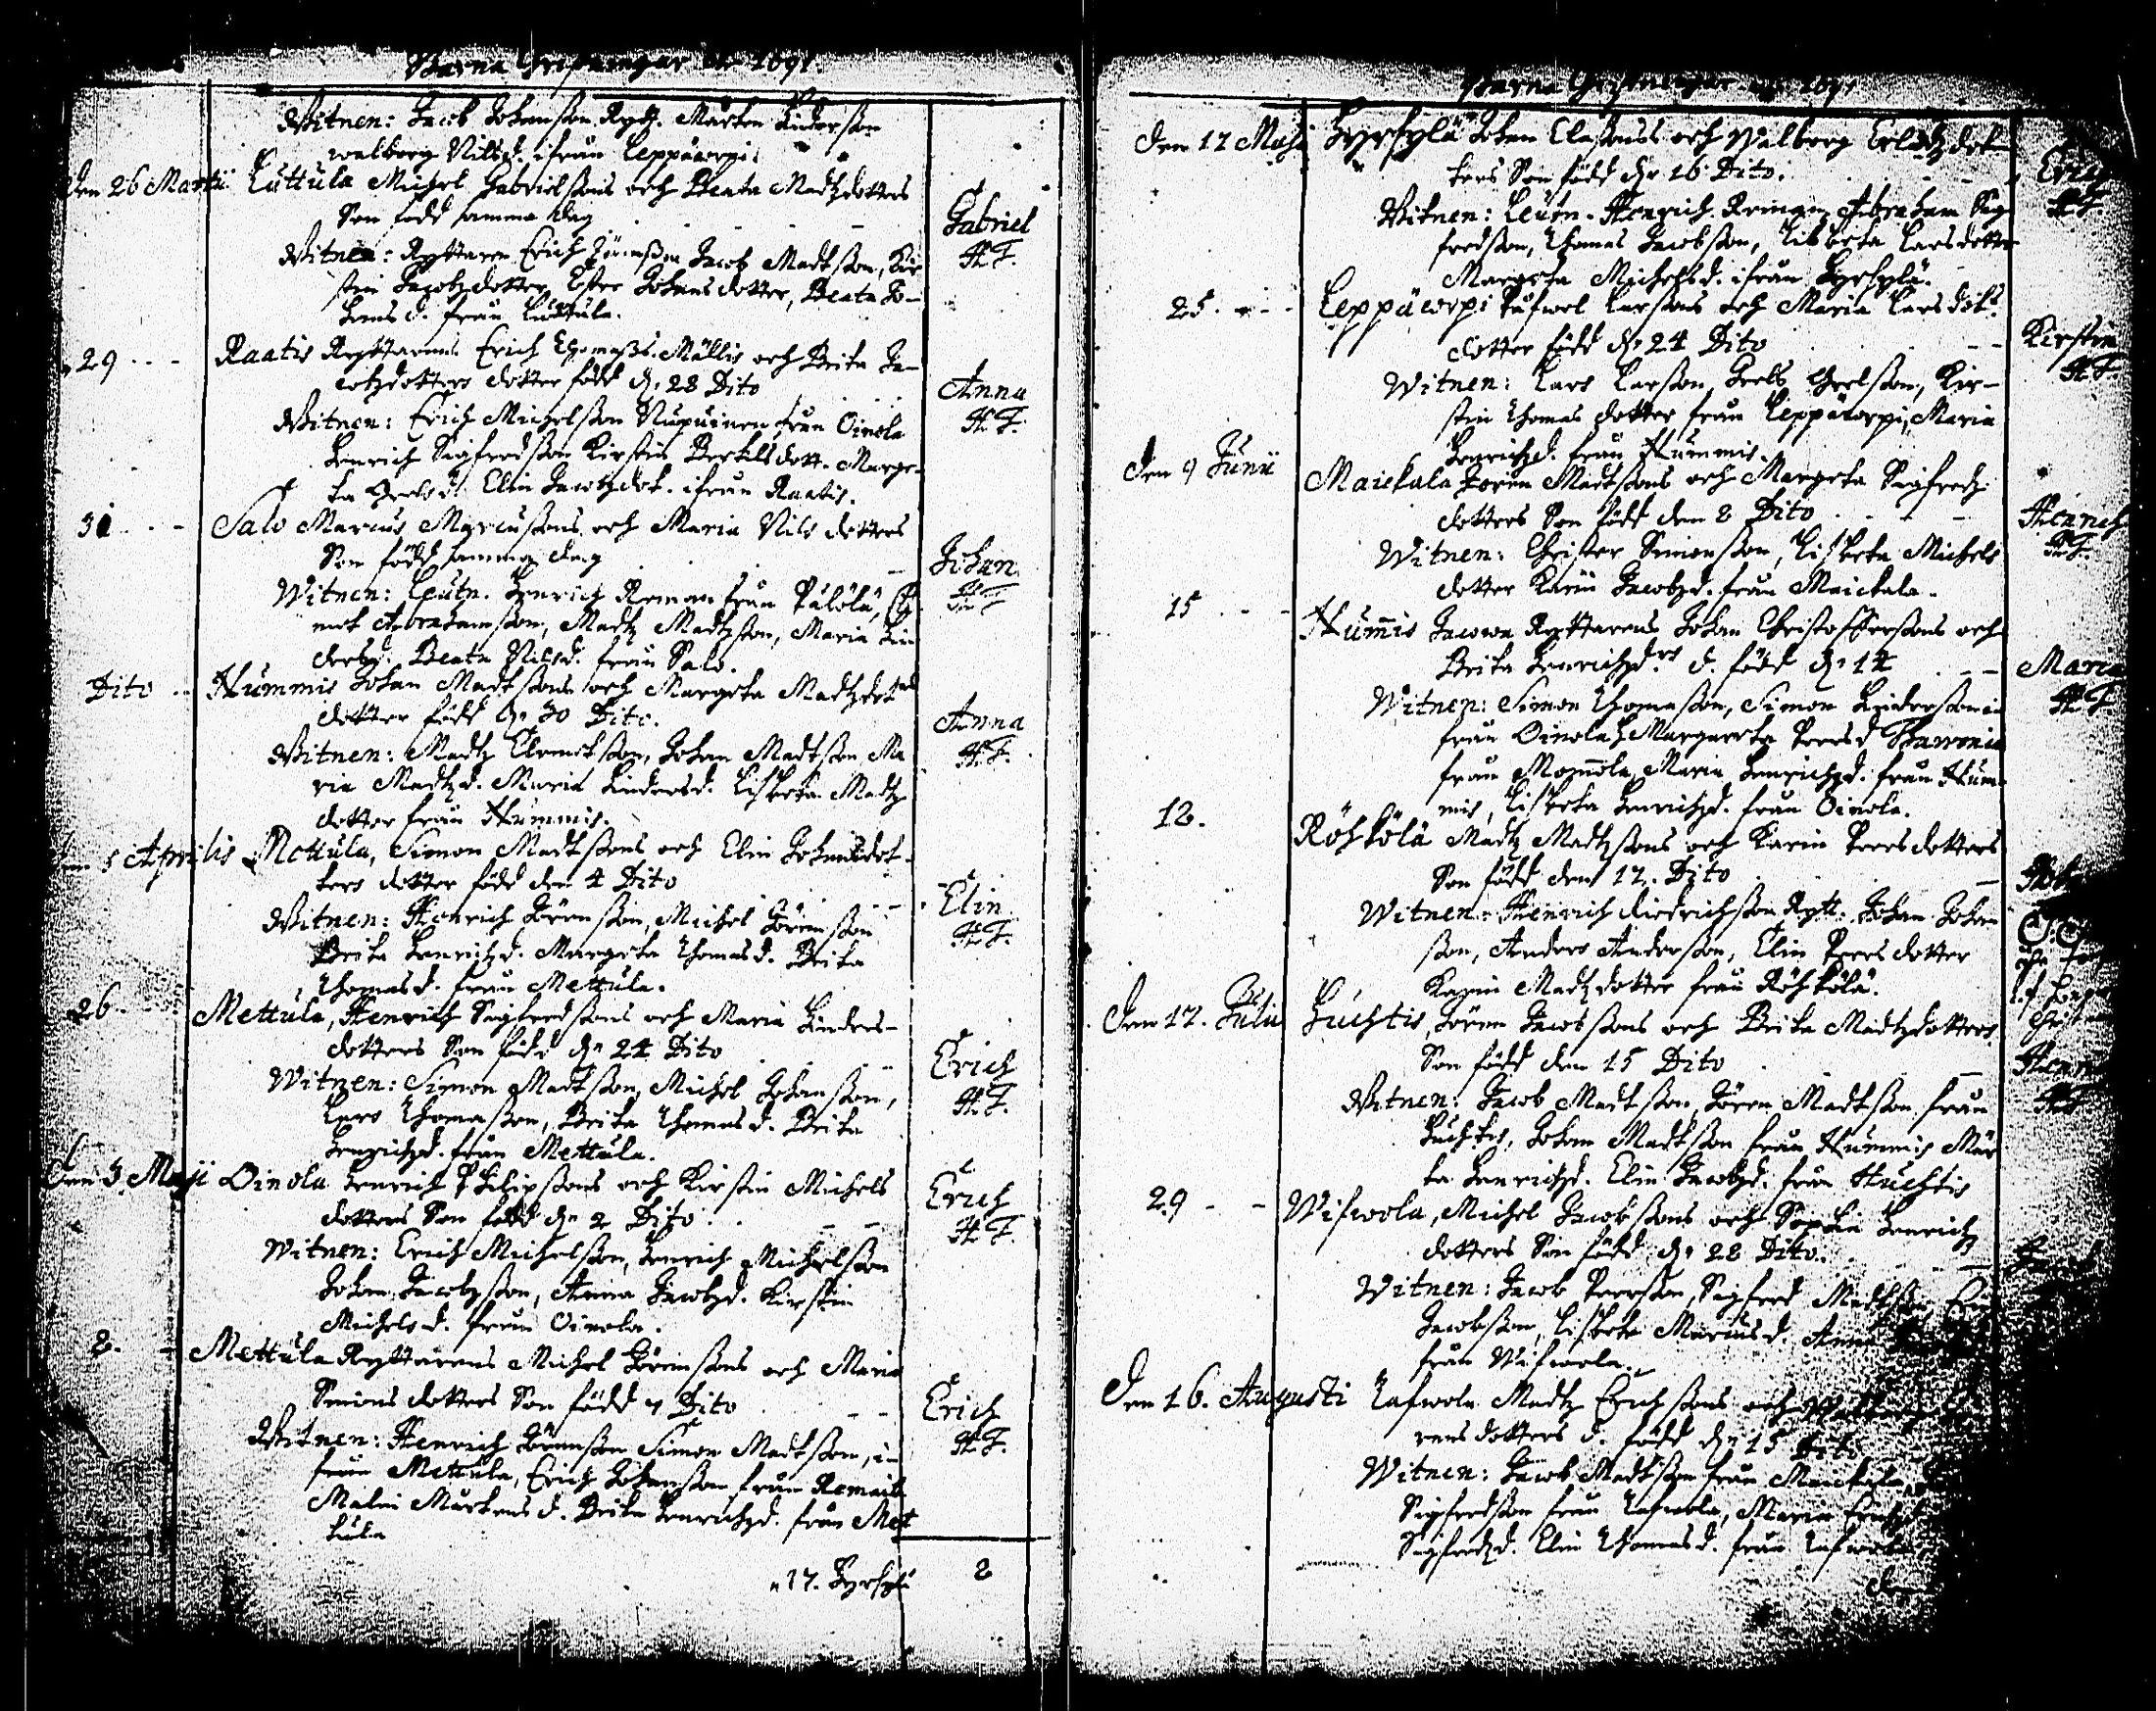 Barna Christningar Ao 1691.
Witnen: Jacob Johansson Rytt. Mårten Hindersson
walborg Nilsd. ifrån Leppäkorpi
Den 26 Martii Luttula Michel Gabrielssons och Beata Madtzdotters
Son född samma dag
Gabriel
H. F.
Witnen: Ryttaren Erich Jörenßon Jacob Madtsson, Kir-
stin Jacobzdotter, Ester Johansdotter, Beata Jo-
hansd. från Luttula.
29 Raatis Ryttarens Erich Thomasss. Mällis och Brita Ja-
cobzdotters dotter född dn 28 Dito
Anna
H. F.
Witnen: Erich Michelsson Nupuinen från Oinola
Henrich Sigfredsson Kirstin Bertilsdott. Marge-
ta Grelsd. Elin Jacobzdot. ifrån Raatis.
31 Salo Marcus Marcussons och Maria Nils dotters
Son född samma dag
Johan
H. F.
Witnen: Leutn. Henrich Reman från Pälölä, Cle-
met Abrahamsson, Madtz Madtzson, Maria Hin
dersd. Beata Nilsd. från Salo.
Dito Hummis Johan Madtssons och Margeta Madtzdot
dotter född dn 30 Dito.
Anna
H. F.
Witnen: Madtz Clemetsson, Johan Madtsson Ma
ria Madtzd. Maria Hindersd. Lisbeta Madtz
dotter från Hummis.
5 Aprilis Mettula, Simon Madtssons och Elin Johansdot-
ters dotter född den 4 Dito
Elin
H. F.
Witnen: Henrich Jörensson, Michel Jörensson
Brita Henrichzd. Margeta Thomasd. Brita
Thomasd. från Mettula.
26 Mettula, Henrich Sigfredssons och Maria Hinders-
dotters Son född dn 24 Dito
Erich
H. F.
Witnen: Simon Madtsson, Michel Johansson,
Lars Thomasson, Brita Thomasd. Brita
Henrichzd. från Mettula.
Den 3. Maji Oinola Henrich Philipssons och Kirstin Michels
dotters Son född dn 2 Dito
Erich
H. F.
Witnen: Erich Michelsson, Henrich Michelsson
Johan Jacobzson, Anna Jacobzd. Kirstin
Michelsd. från Oinola.
8. Mettula Ryttarens Michel Jörenssons och Maria
Simons dotters Son född 7 Dito
Erich
H. F.
Witnen: Henrich Jörensson Simon Madtsson, i-
från Mettula, Erich Johansson från
Malin Mårtensd. Brita Henrichzd. från Met
tula
17. Hyrsylä 8
Barna Christningar Ao 1691
Den 17 Maji Hyrsylä Johan Classons och Walborg dot-
ters Son född dn 16 Dito.
Erich
H. F.
Witnen: Leutn. Henrich Reman, Abraham Sig-
fredsson, Thomas Jacobsson, Lisbeta Larsdotter
Margeta Michelsd. ifrån Hyrsylä.
25. Leppäkorpi Påfwel Larssons och Maria Lars dots
dotter född dn 24 Dito
Kirstin
H. F.
Witnen: Lars Larsson, Grels Grelsson, Kir-
stin Thomas dotter från Leppäkorpi, Maria
Henrichzd. från Hummis.
den 9 Junii Maickala Jören Madtssons och Margeta Sigfredz
dotters Son född den 8 Dito
Henrich
H. F.
Witnen: Christer Simonsson, Lisbeta Michels
dotter Karin Jacobzd. från Maickala.
15 Hum̄is Ryttarens Johan Christofferssons och
Brita Henrichzd.rs d. född dn 14
Maria
H. F.
Witnen: Simon Thomasson, Simon Hindersson i-
från Oinola, Margareta Peersd
från Mom̄ola, Maria Henrichzd. från Hum-
mis, Lisbeta Henrichzd. från Oinola.
12. Röhkölä Madtz Madtzsons och Karin Peersdotters
Son född den 17. Dito
Witnen: Henrich Diedrichsson Rytt. Johan Johan
sson, Anders Andersson, Elin Peersdotter
Karin Madtzdotter från Röhkölä.
Den 17. Julii Huchtis, Jören Jacobssons och Brita Madtzdotters
Son född den 15 Dito
Henr
H. F.
Witnen: Jacob Madtsson, Jören Madtsson från
Huchtis, Johan Madtsson från Hummis Mar
ta Henrichzd. Elin Jacobzd. från Huchtis
29 Wiswola, Michel Jacobssons och Sophia Henrichz
dotters Son född dn 28 Dito.
Jacob
Witnen: Jacob Peersson, Sigfred Madtsson,
Jacobsson, Lisbeta Marcusd. Anna
från Wiswola.
Den 16. Augusti Lafwola Madtz Erichssons och Walborg
rens dotters d. född dn 15 Dito
Witnen: Jacob Madtsson från Maickala,
Sigfredsson från Lafwola, Maria
Sigfredzd. Elin Thomasd. från Lafwola